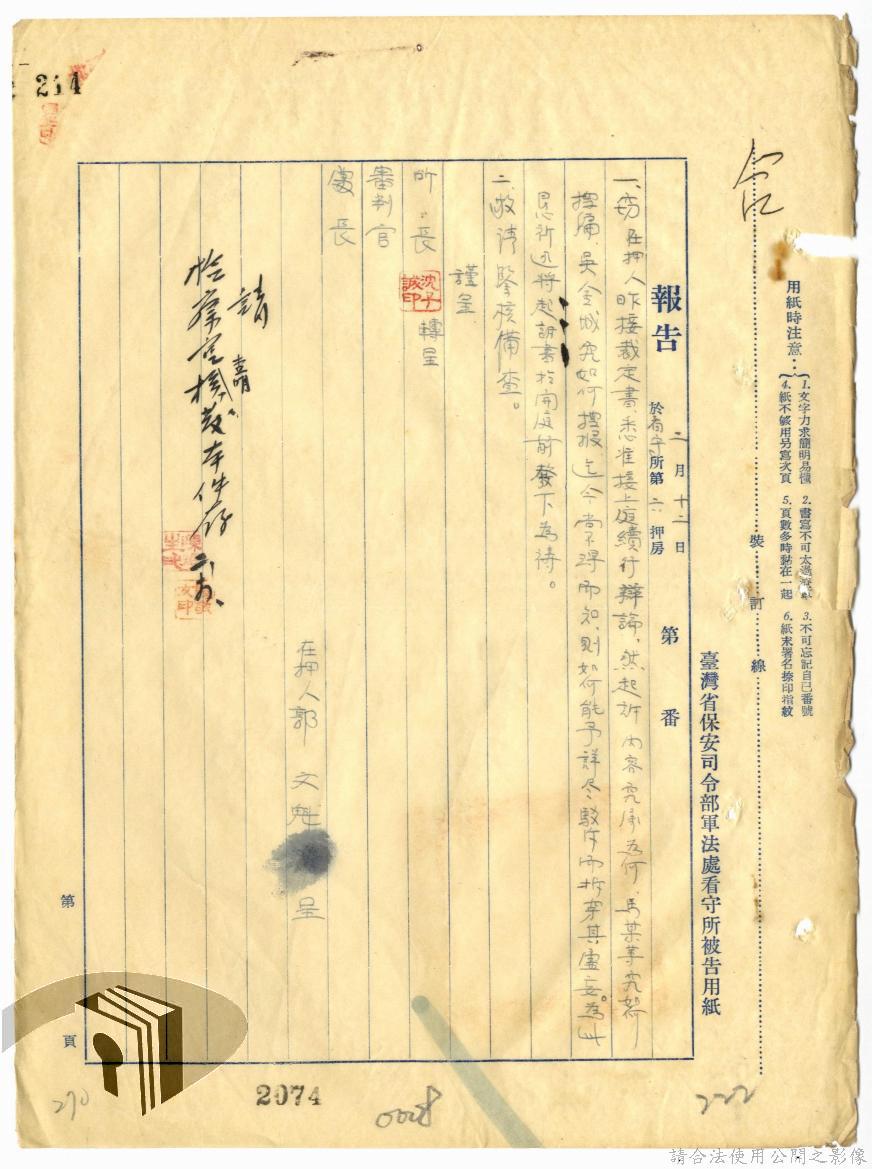 264
用紙時注意：
1.文字力求簡明易懂
2.書寫不可太過潦草
3.不可忘記自己番號
4.紙不够用另寫次頁
5.頁數多時黏在一起
6.紙末署名捺印指紋
裝訂線
臺灣省保安司令部軍法處看守所被告用紙
報告 二月十二日 於看守所第六押房 第 番
一、竊在押人昨接裁定書、悉准接上庭續行辯論，然起訴內容究屬為何、馬某等究如何
控漏、吳金城究如何控報、迄今尚不得而知、則如何能予詳尽駁斥而拆穿其虛妄。為此
恳祈迅將起訴書於開庭前發下為禱。
二、敬請鑒核備查。
謹呈
所長 轉呈
沈子誠印
審判官
處長
在押人郭文魁 呈
請
檢察官核 本件存
第 頁
2074
0008
270
222
請合法使用公開之影像